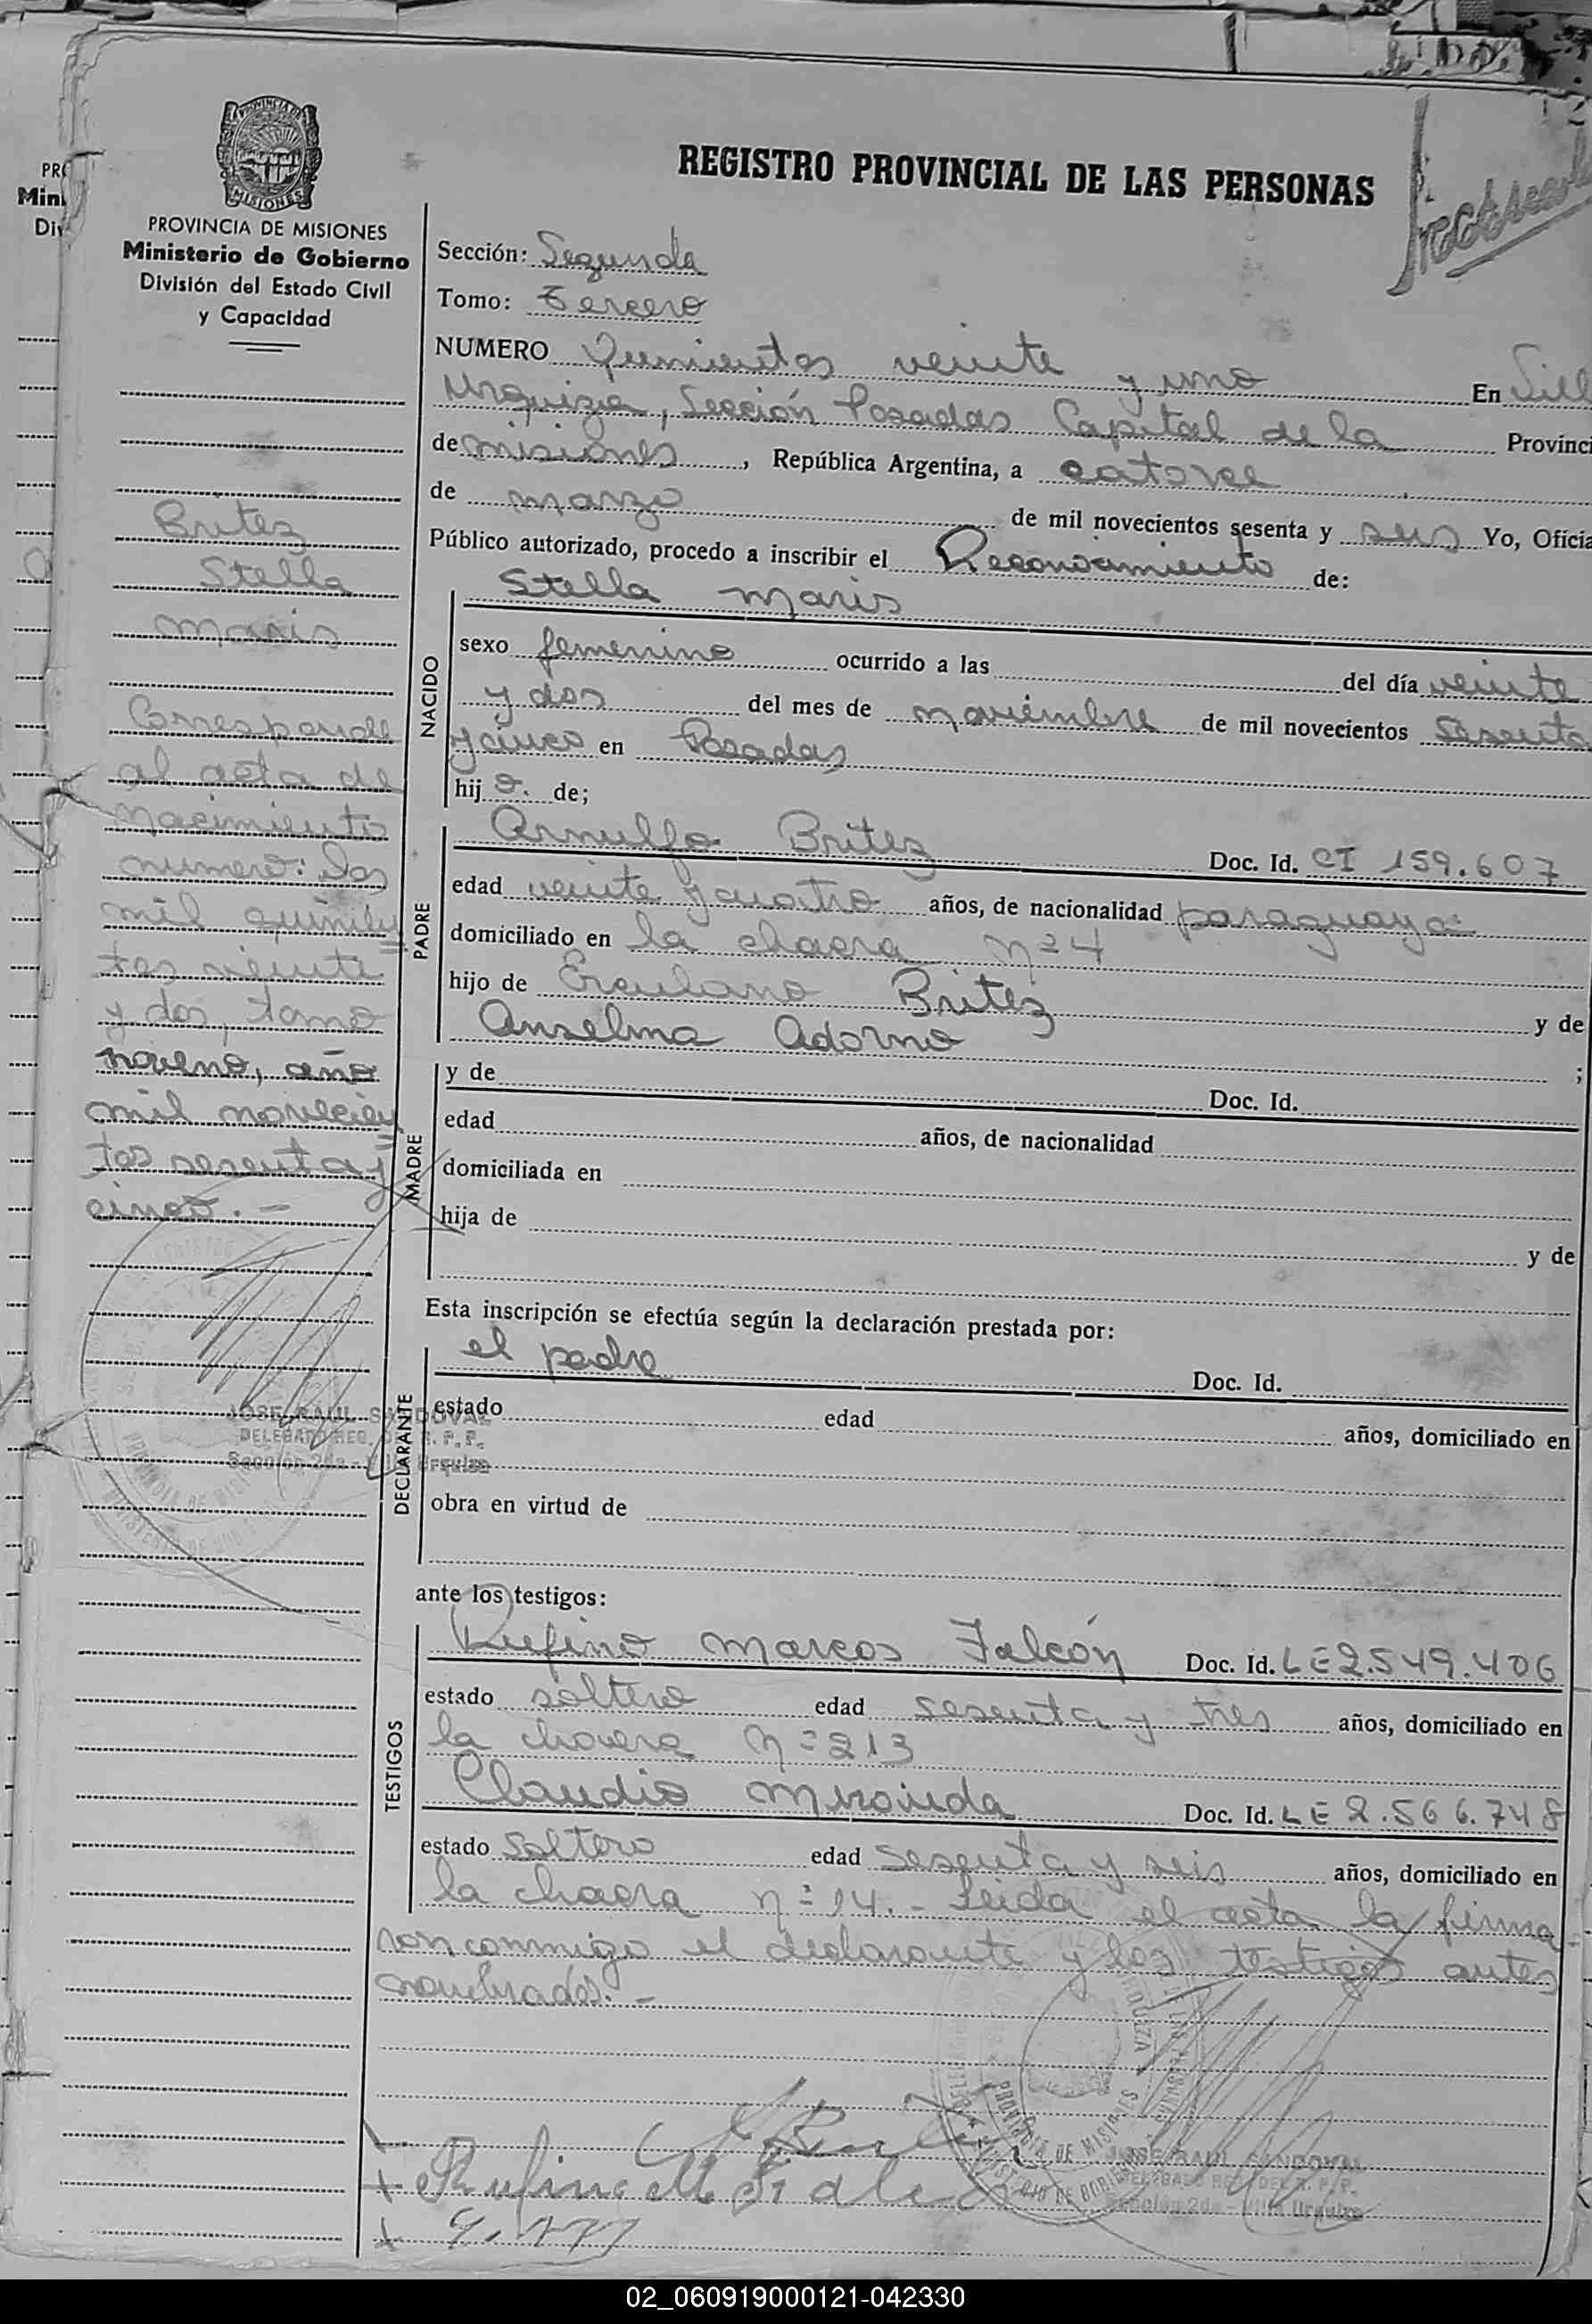 REGISTRO PROVINCIAL DE LAS PERSONAS
PROVINCIA DE
MISIONES
PROVINCIA DE MISIONES
Ministerio de Gobierno
División del Estado Civil
y Capacidad
Britez
Stella
Maris
Corresponde
al acta de
nacimiento
numero: dos
mil quinien
tos veinte
y dos, tomo
noveno, año
mil novecien
tos sesenta y
cinco. -
JOSE RAUL SANDOVAL
DELEGADO REG. DEL R. P. P.
Sección 2da - Villa Urquiza
Sección: Segunda
Tomo: Tercero
NUMERO Quinientos veinte y uno En Vill
Urquiza, Sección Posadas Capital de la Provinci
de Misiones, República Argentina, a catorce
de marzo de mil novecientos sesenta y seis Yo, Oficia
Público autorizado, procedo a inscribir el Reconocimiento de:
Stella Maris
NACIDO
sexo femenino ocurrido a las del día veinte
y dos del mes de noviembre de mil novecientos sesenta
y cinco en Posadas
hij a. de;
PADRE
Arnulfo Britez Doc. Id. CI 159.607
edad veinte y cuatro años, de nacionalidad paraguaya
domiciliado en la chacra nº 4
hijo de Erculano Britez y de
Anselma Adorno ;
MADRE
y de Doc. Id.
edad años, de nacionalidad
domiciliada en
hija de y de
Esta inscripción se efectúa según la declaración prestada por:
DECLARANTE
el padre Doc. Id.
estado edad años, domiciliado en
obra en virtud de
ante los testigos:
TESTIGOS
Rufino Marcos Falcón Doc. Id. LE 2.549.406
estado soltero edad sesenta y tres años, domiciliado en
la chacra nº 213
Claudio Miranda Doc. Id. LE 2.566.748
estado soltero edad sesenta y seis años, domiciliado en
la chacra nº 14. - Leida el acta la firma
ron conmigo el declarante y los testigos antes
nombrados. -
JOSE RAUL SANDOVAL
DELEGADO REG. DEL R. P. P.
Sección 2da - Villa Urquiza
02_060919000121-042330